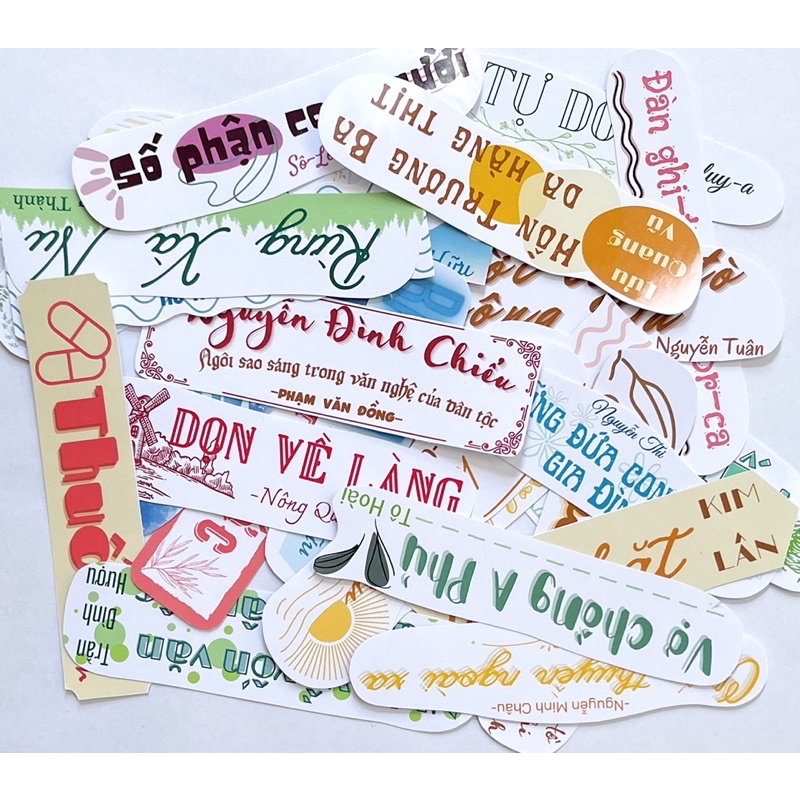 Số phận co
Sô-L
TỰ DO
Đàn ghi-
luy-a
HỒN TRƯƠNG BA
DA HÀNG THỊT
Lưu
Quang
Vũ
Thành
Rừng Xà Nu
tờ
ông
Nguyễn Tuân
Nguyễn Đình Chiểu
Ngôi sao sáng trong văn nghệ của dân tộc
-PHẠM VĂN ĐỒNG-
or-ca
Thuố
DỌN VỀ LÀNG
-Nông Qu
Nguyễn Thi
ỮNG ĐỨA CON
GIA ĐÌN
KIM
LÂN
ặt
Tô Hoài
Vợ chồng A Phủ
Trần
Đình
Hượu
vốn văn
thuyền ngoài xa
-Nguyễn Minh Châu-